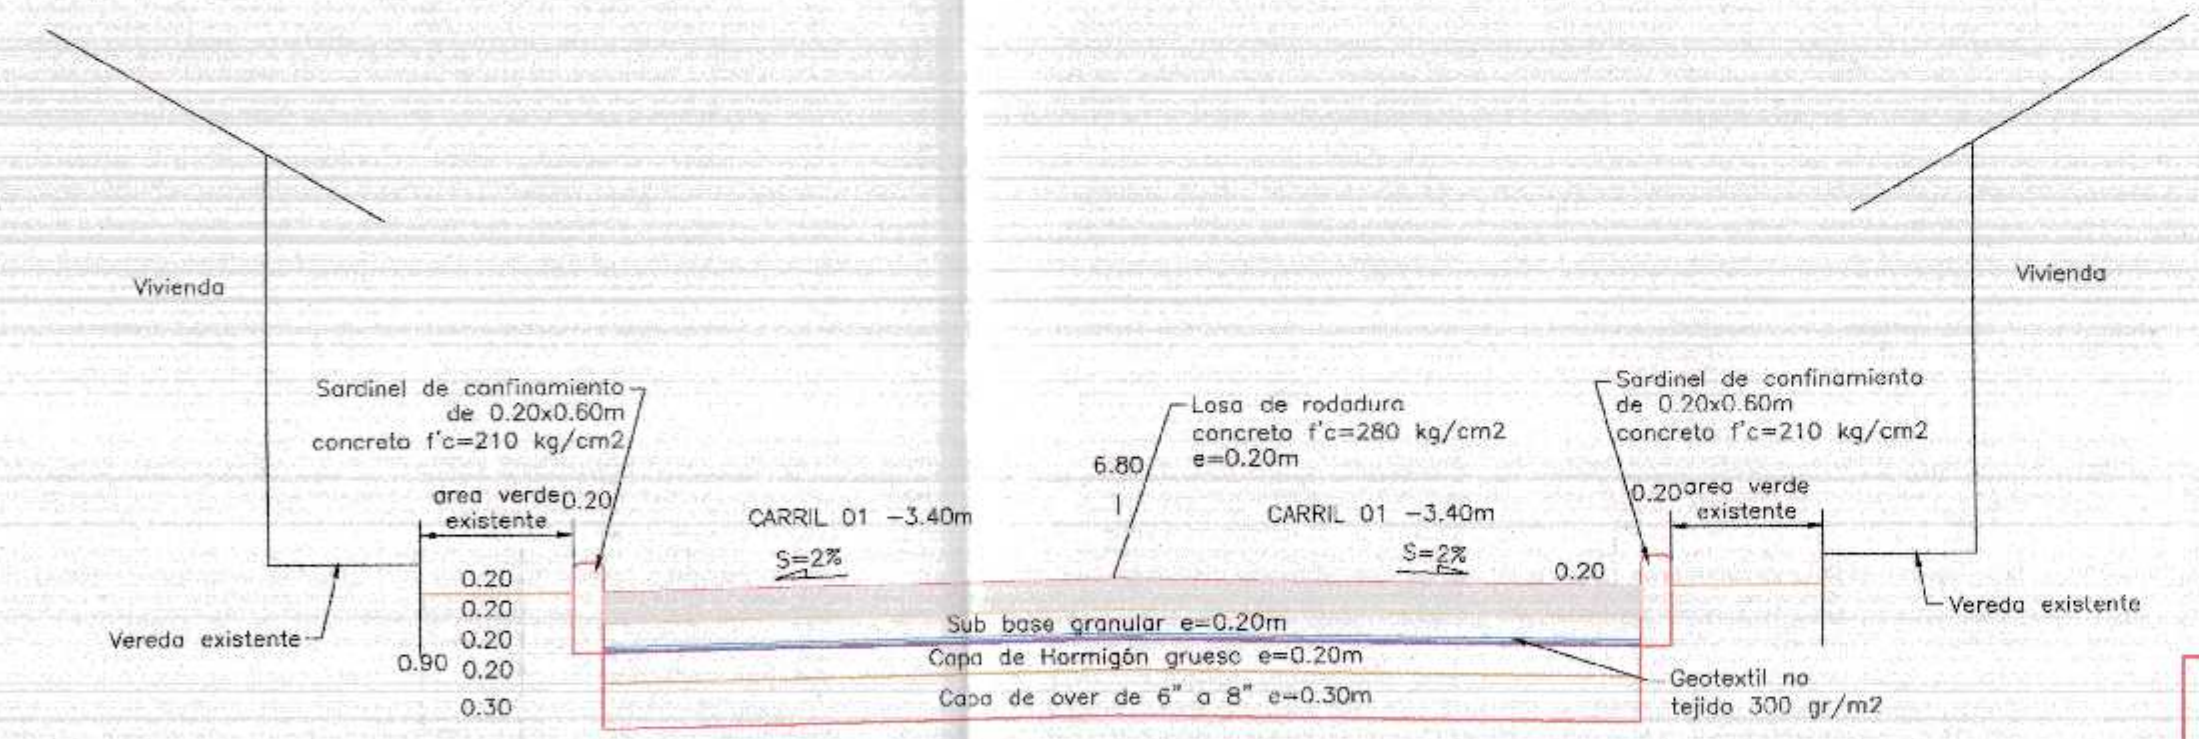 Vivienda
Vivienda
Sardinel de confinamiento
de 0.20x0.60m
concreto f'c=210 kg/cm2
Losa de rodadura
concreto f'c=280 kg/cm2
e=0.20m
6.80
Sardinel de confinamiento
de 0.20x0.60m
concreto f'c=210 kg/cm2
area verde
existente
0.20
CARRIL 01 -3.40m
CARRIL 01 -3.40m
0.20
area verde
existente
S=2%
S=2%
0.20
0.20
0.20
0.20
0.20
0.30
0.90
Vereda existente
Vereda existente
Sub base granular e=0.20m
Capa de Hormigón grueso e=0.20m
Capa de over de 6" a 8" e=0.30m
Geotextil no
tejido 300 gr/m2